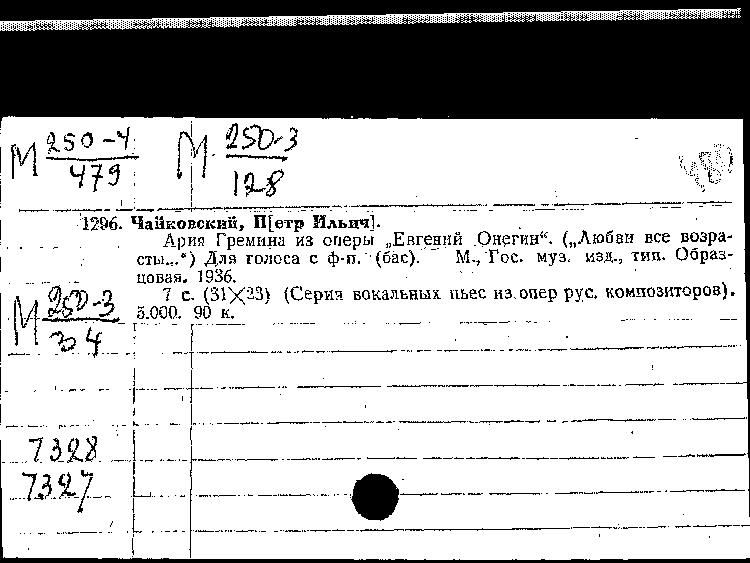 М 250-4
479
М 250-3
128
1296. Чайковский, П[етр Ильич].
Ария Гремина из оперы „Евгений Онегин“. („Любви все возра-
сты...“) Для голоса с ф-п. (бас). М., Гос. муз. изд., тип. Образ-
цовая. 1936.
7 с. (31×23) (Серия вокальных пьес из опер рус. композиторов).
5.000. 90 к.
М 250-3
34
7328
7327